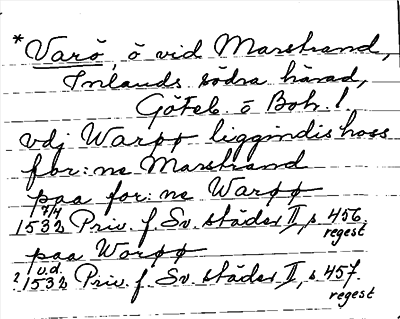 *Varö, ö vid Marstrand,
Inlands södra härad,
Göteb. o Boh. l.
vdj Warøø liggindis hoss
for:ne Marstrand
paa for:ne Warøø
1532 7/4 Priv. f. Sv. städer II, s 456.
regest
paa Warøø
? 1532 u.d. Priv. f. Sv. städer II, s 457.
regest